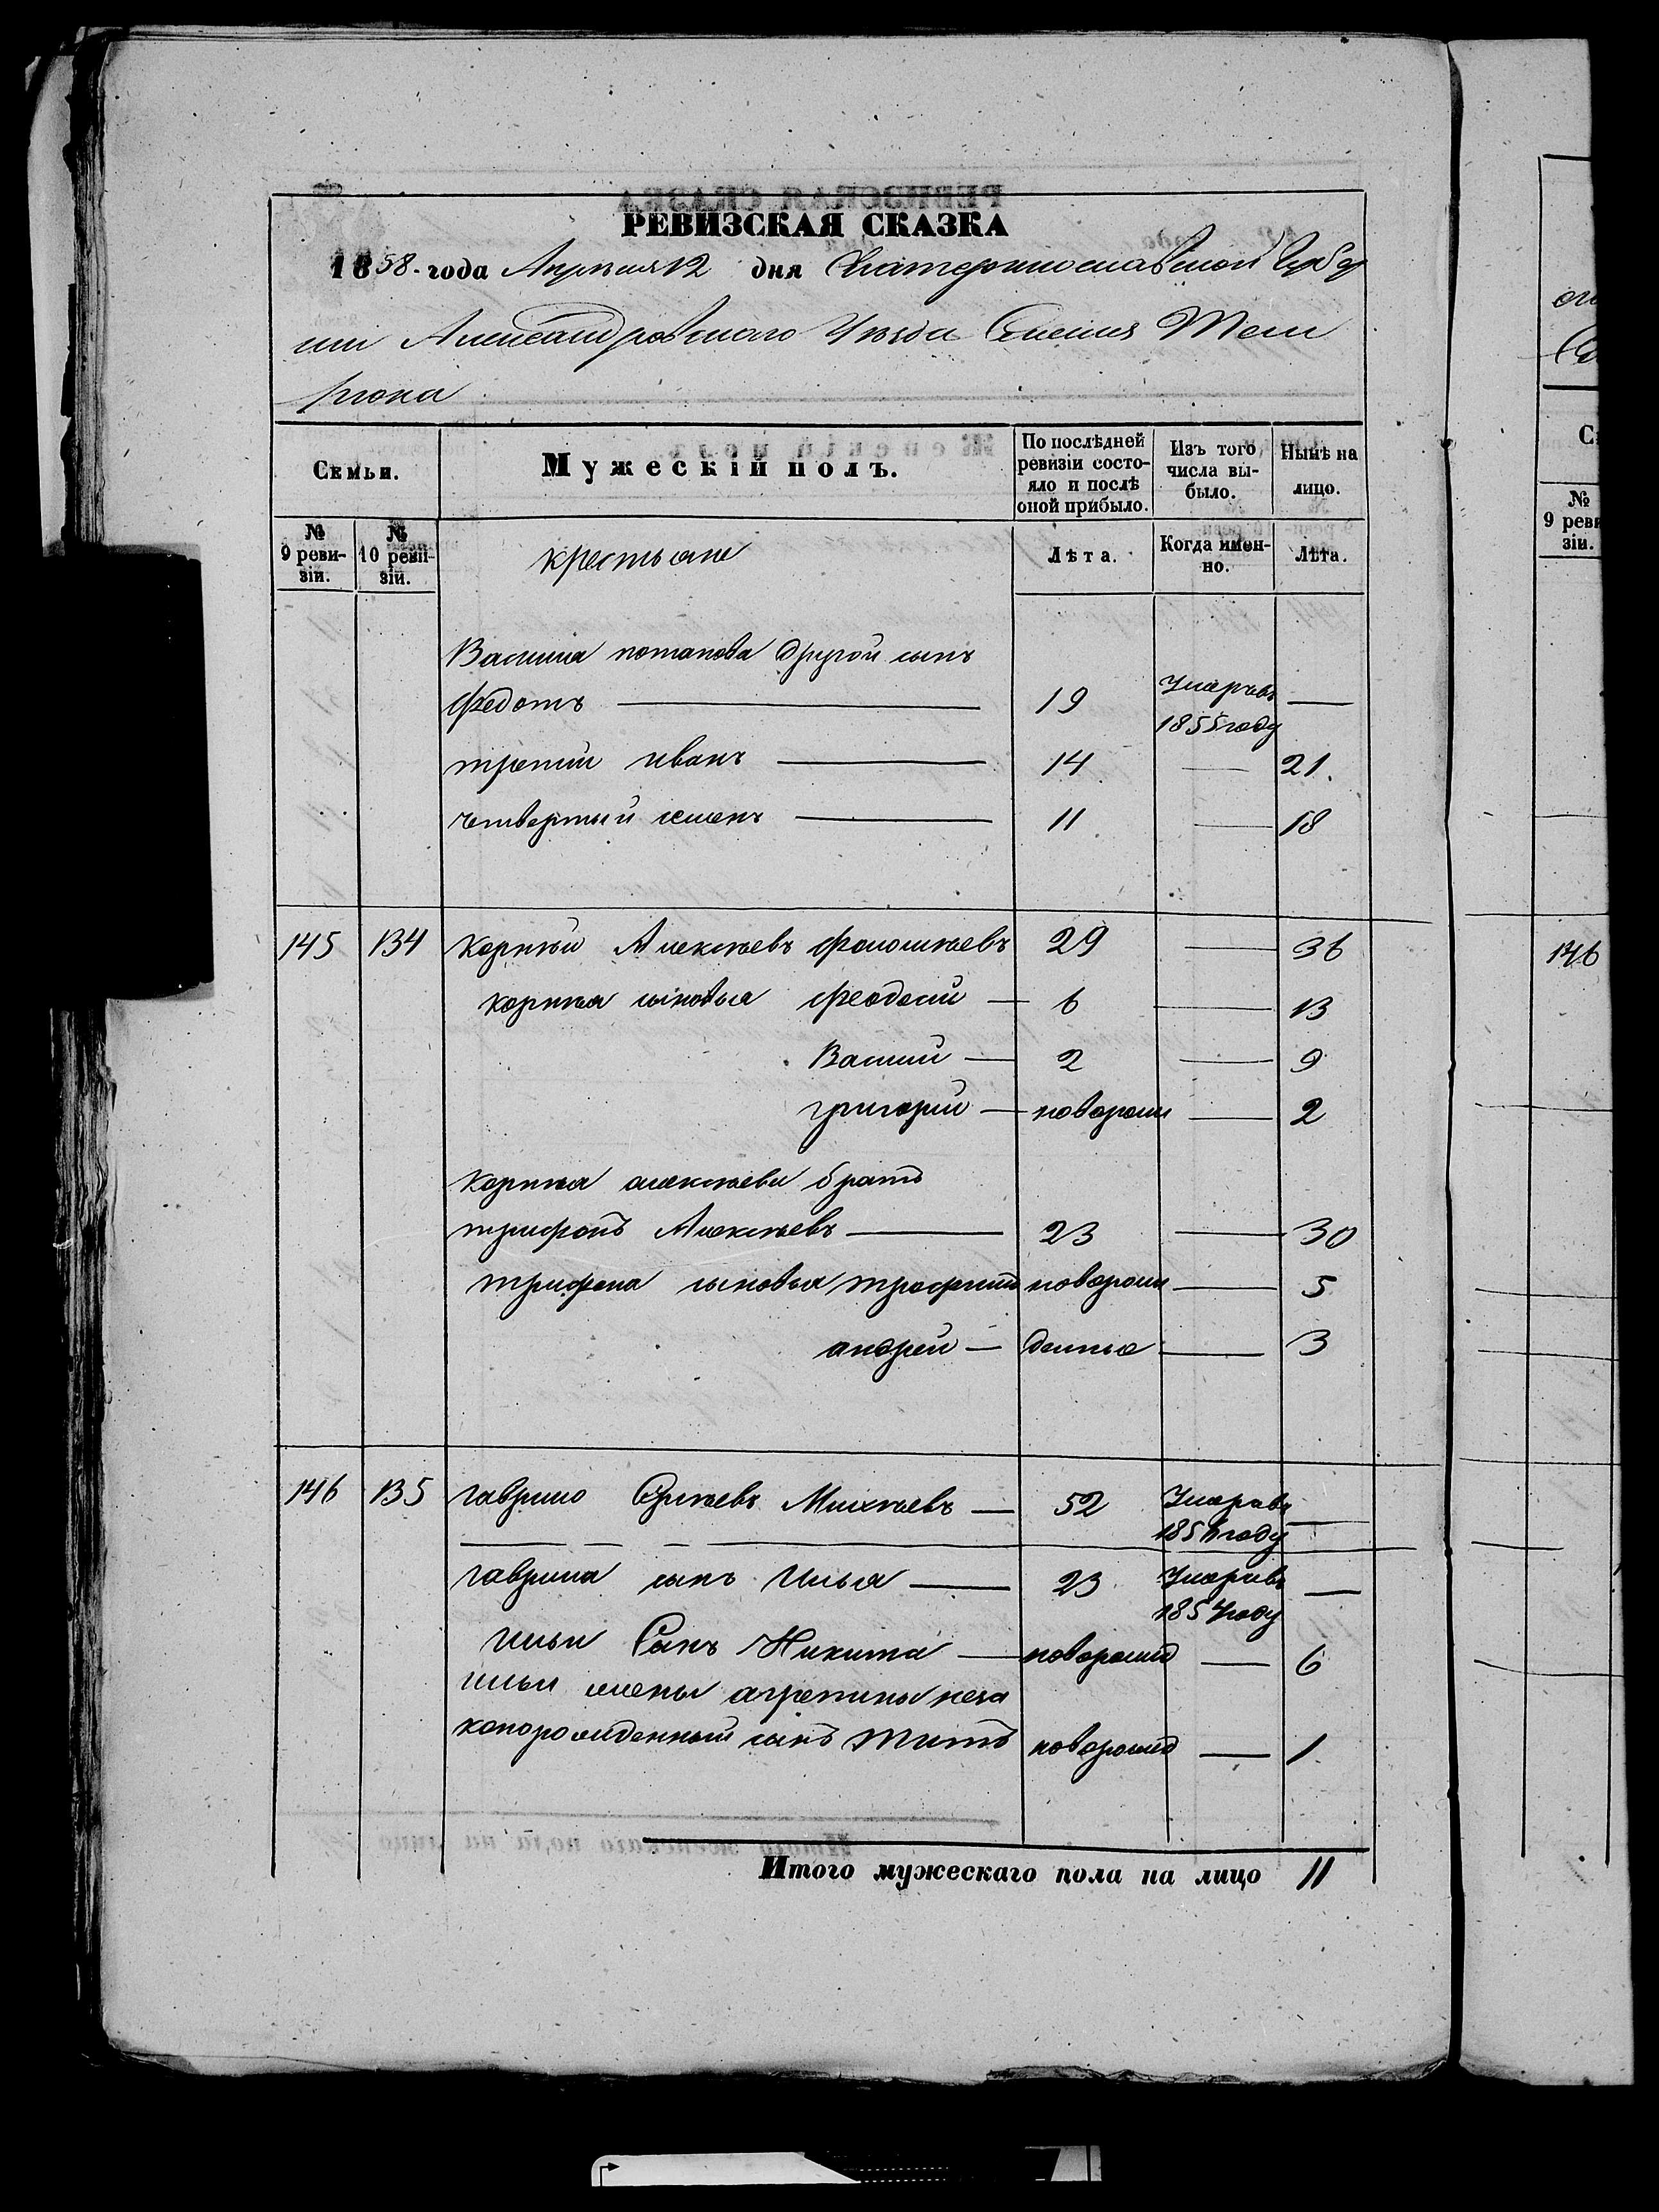 РЕВИЗСКАЯ СКАЗКА
1858. года Апреля 12 дня Екатеринославской Губер
нии Александровского Уезда Селения Тем
рюка
Семьи.
Мужескій полъ.
По послѣдней ревизіи состояло и послѣ оной прибыло.
Изъ того числа выбыло.
Нынѣ на лицо.
№ 9 ревизіи.
№ 10 ревизіи.
крестьяне
Лѣта.
Когда именно.
Лѣта.
Василия потапова другой сынъ
Федотъ — 19 Умеръ въ 1855 году —
третий иванъ — 14 — 21.
четвертый семенъ — 11 — 18
145 134 Корнѣй Алексѣевъ 29 — 36
Корнѣя сыновья феодосий — 6 — 13
Василий — 2 — 9
григорий — новорожд — 2
Корнѣя алексѣева братъ
трифонъ Алексѣевъ — 23 — 30
трифона сыновья трофимъ новорож — 5
андрей — денные — 3
146 135 гаврило Михѣевъ — 52 Умеръ въ 185 году —
гаврила сынъ Илья — 23 Умеръ въ 1854 году —
ильи Сынъ Никита — новорожд — 6
ильи жены агрепины неза
конорожденный сынъ Титъ новорожд — 1
Итого мужескаго пола на лицо 11
№ 9 реви зіи.
146